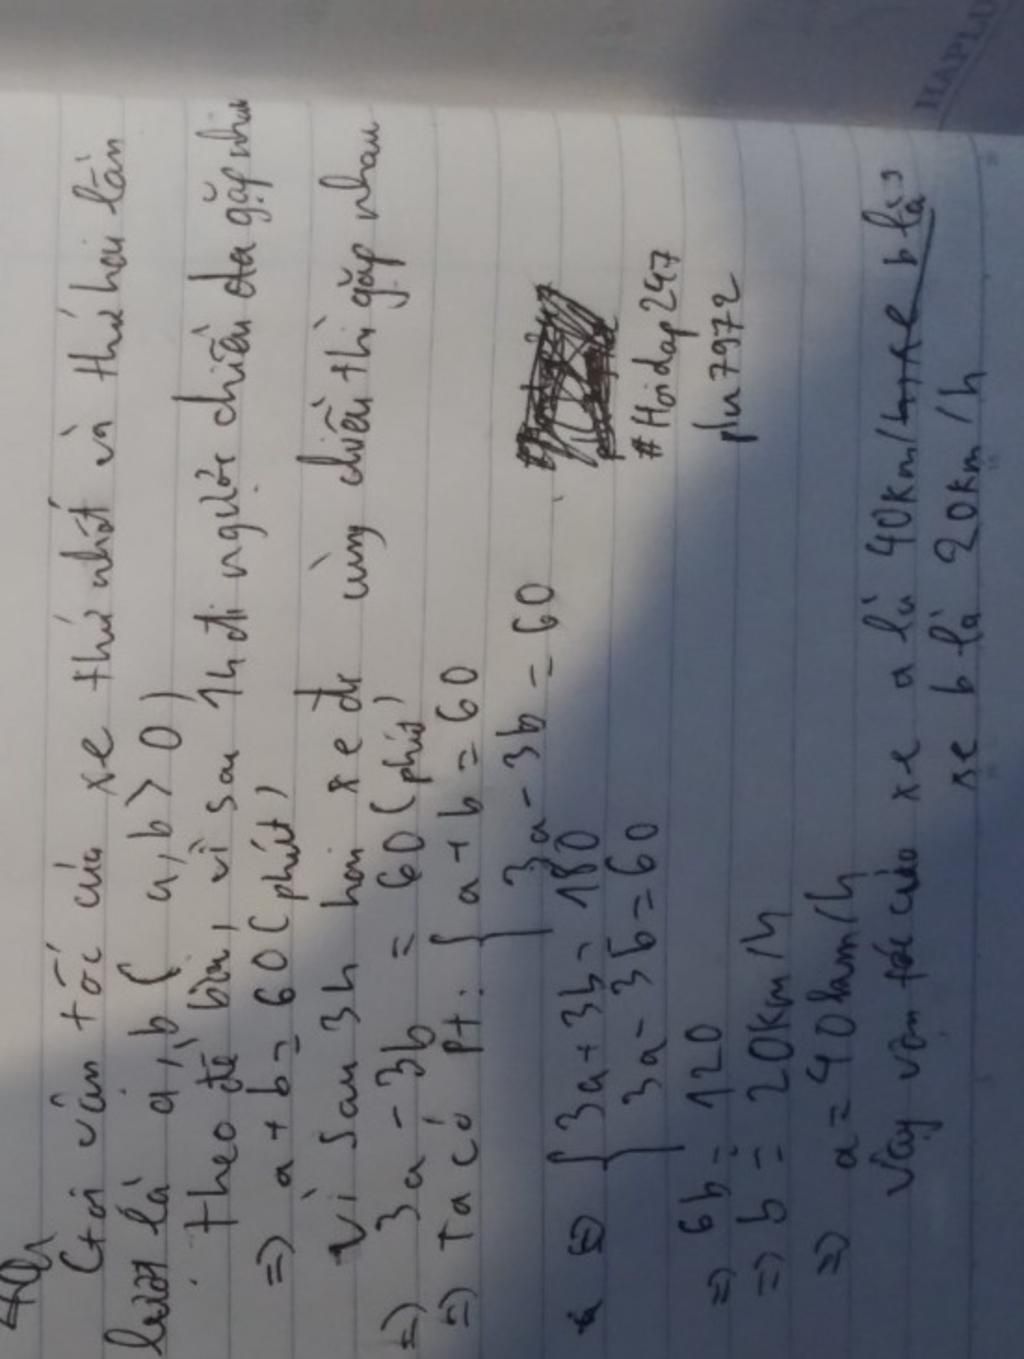 Gọi vân tốc của xe thứ nhất và thứ hai lần
lượt là a, b ( a, b > 0 )
Theo đề bài, vì sau 1h đi ngược chiều đa gặp nhau
=) a + b = 60 ( phút )
Vì sau 3h hai xe đi cùng chiều thì gặp nhau
=) 3a - 3b = 60 ( phút )
=) Ta có pt: { a + b = 60
3a - 3b = 60
(=) { 3a + 3b = 180
3a - 3b = 60
#Hoidap247
=) 6b = 120
=) b = 20km/h
=) a = 40km/h
Vậy vận tốc của xe a là 40km/h
xe b là 20km/h
HAPLU